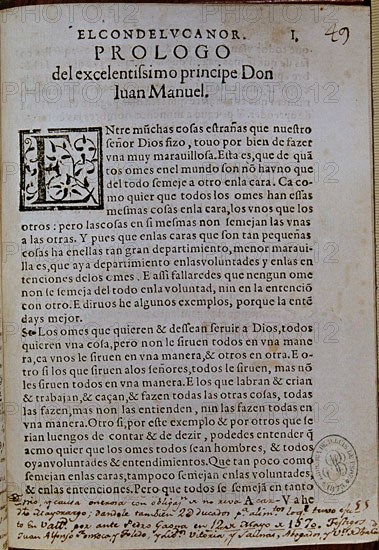 EL CONDE LVCANOR. I. 49
PROLOGO
del excelentissimo principe Don
Iuan Manuel.
ENtre muchas cosas estrañas que nuestro
señor Dios fizo, touo por bien de fazer
vna muy marauillosa. Esta es, que de quã
tos omes en el mundo son nõ hay vno que
del todo semeje a otro en la cara. Ca co-
mo quier que todos los omes han essas
mesmas cosas en la cara, los vnos que los
otros: pero las cosas en si mesmas non semejan las vnas
a las otras. Y pues que en las caras que son tan pequeñas
cosas ha en ellas tan gran departimiento, menor maraui-
lla es, que aya departimiento en las voluntades y en las en
tenciones de los omes. E assi fallaredes que ningun ome
non se semeja del todo en la voluntad, nin en la entenciõ
con otro. E diruos he algunos exemplos, porque la entẽ
days mejor.
Los omes que quieren & dessean seruir a Dios, todos
quieren vna cosa, pero non le siruen todos en vna mane
ra, ca vnos le siruen en vna manera, & otros en otra. E o-
tro si los que siruen a los señores, todos le siruen, mas nõ
les siruen todos en vna manera. E los que labran & crian
& trabajan, & caçan, & fazen todas las otras cosas, todas
las fazen, mas non las entienden, nin las fazen todas en
vna manera. Otro si, por este exemplo & por otros que se
rian luengos de contar & de dezir, podedes entender q̃
acmo quier que los omes todos sean hombres, & todos
oyan voluntades & entendimientos. Que tan poco como
semejan en las caras, tampoco semejan en las voluntades
& en las entenciones. Pero que todos se semejã en tanto
A 2 Va he
en 12 de Mayo de 1570.